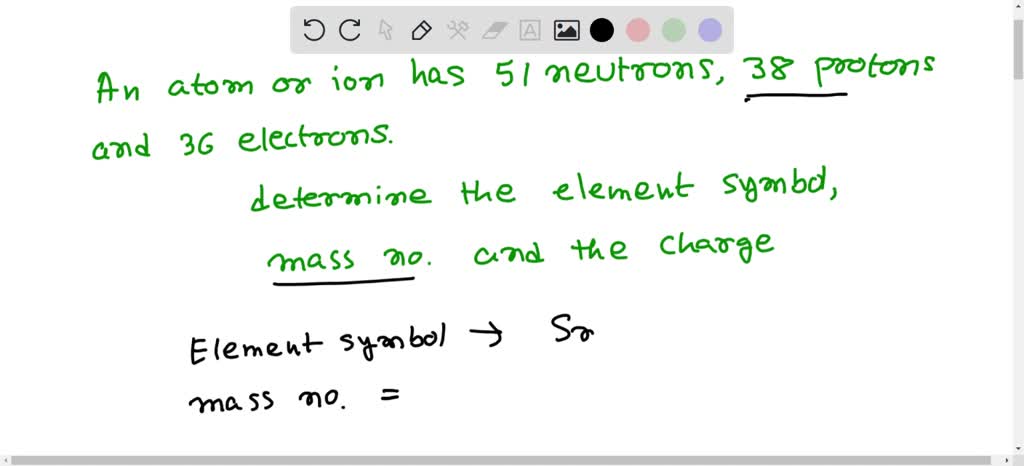 An atom or ion has 51 neutrons, 38 protons
and 36 electrons.
determine the element symbol,
mass no. and the charge
Element symbol → Sr
mass no. =